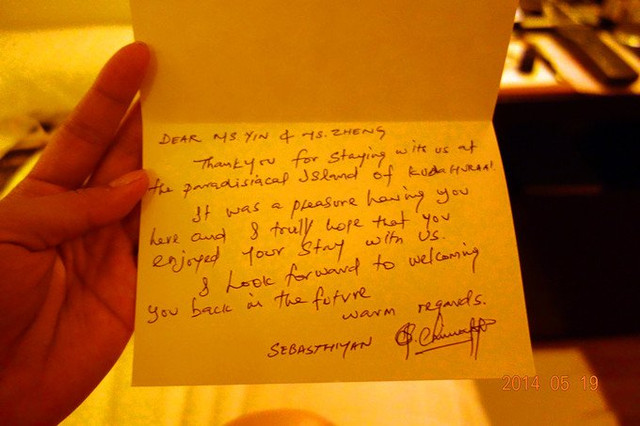 DEAR MS YIN & MS. ZHENG
Thankyou for staying with us at
the paradisiacal Island of KUDA HURAA!
It was a pleasure having you
here and I trully hope that you
enjoyed your stay with us.
I look forward to welcoming
you back in the future
warm regards.
SEBASTHIYAN
2014 05 19